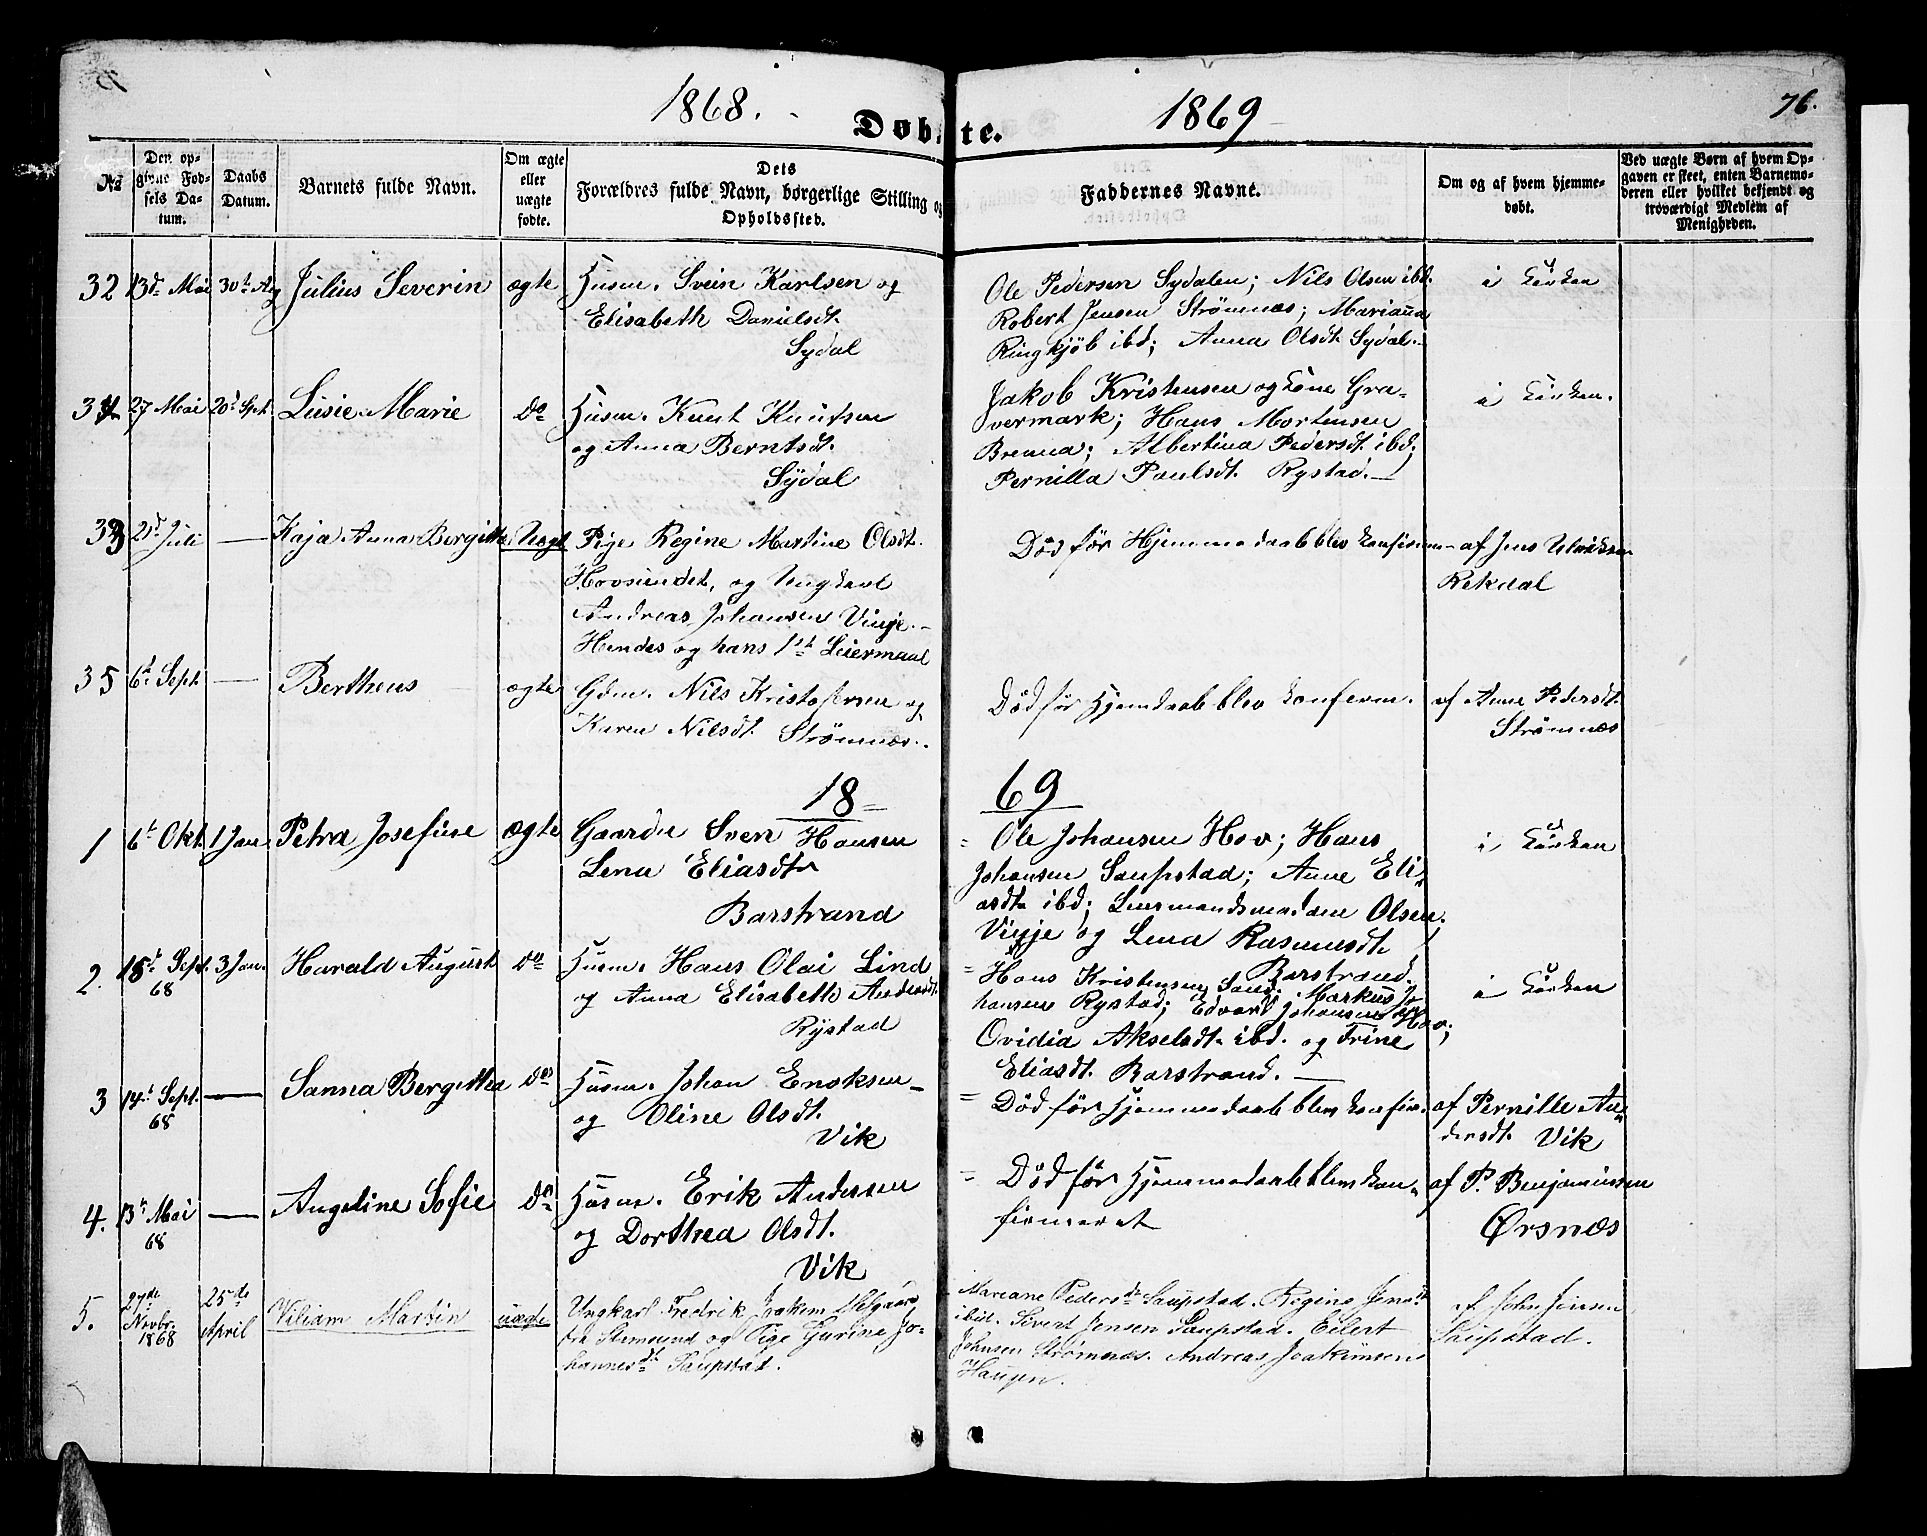 1868.
1869
76.
Døbte.
No
Den opgivne Fødsels Datum.
Daabs Datum.
Barnets fulde Navn.
Om ægte eller uægte fødte.
Dets Forældres fulde Navn, borgerlige Stilling og Opholdssted.
Faddernes Navne.
Om og af hvem hjemmedøbt.
Ved uægte Børn af hvem Opgaven er skeet, enten Barnemoderen eller hvilket bekjendt og troværdigt Medlem af Menigheden.
32 13d Mai 30te Aug Julius Severin ægte Husm. Svein Karlsen og
Elisabeth Danielsdt.
Sydal
Ole Pedersen Sydalen; Nils Olsen ibd.
Robert Jensen Strømnæs; Marianna
Ringkjøb ibd; Anna Olsdt Sydal.
i Kirken
34 27 Mai 20d Spt. Lusie Marie Do Husm. Knut Knutsen
og Anna Berntsdt.
Sydal
Jakob Kristensen og Kone Gra-
vermark; Hans Mortensen
Brenna; Albertina Pedersdt. ibd;
Pernilla Paulsdt. Rystad.
i Kirken.
33 21d Juli — Kaja Anna Bergitte Uægt Pige Regine Martine Olsdt.
Hovsundet, og Ungkarl
Andreas Johansen Vinje.
Hendes og hans 1st Leiermaal
Død før Hjemmedaab blev konfirm- af Jens Ulriksen
Rekdal
35 6t Sept. — Bertheus ægte Gdm. Nils Kristofersen og
Karen Nilsdt. Strømnæs.
Død før Hjemdaab blev konferm. af Anne Pedersdt.
Strømnæs
18 69
1 6t Okt. 1 Jan. Petra Josefine ægte Gaardm Sven Hansen
Lena Eliasdt
Barstrand
= Ole Johansen Hov; Hans
Johansen Saupstad; Anne Eli-
asdt ibd; Lensmandsmadam Olsen
Vinje og Lena Rasmusdt
Barstrand.
i Kirken
2. 18t Sept. 68 3 Jan. Harald August Do Husm. Hans Olai Lind
og Anna Elisabeth Andersdt.
Rystad
= Hans Kristensen Sand; Markus Jo-
hansen Rystad; Edvart Johansen Hov;
Ovidia Akselsdt. ibd. og Trine
Eliasdt. Barstrand.
i Kirken
3 14t Sept. 68 — Sanna Bergithea Do Husm. Johan Enoksen
og Oline Olsdt.
Vik
= Død før Hjemmedaab blev konfirm. af Pernille An-
dersdt. Vik
4. 13t Mai 68 — Angeline Sofie Do Husm. Erik Andersen
og Dorthea Olsdt.
Vik
= Død før Hjemmedaab blev kon-
firmeret
af P. Benjaminsen
Ørsnæs
5. 27de Novbr. 1868 25de April Viliam Martin uægte Ungkarl Fredrik Joakem
fra og Pige Gurine Jo-
hannesdt Saupstad.
Mariane Pedersdt Saupstad. Regine Jensdt
ibid. Sivert Jensen Saupstad. Eilert
Johnsen Strømnæs. Andreas Joakimsen
Haugen.
af John Jensen
Saupstad.